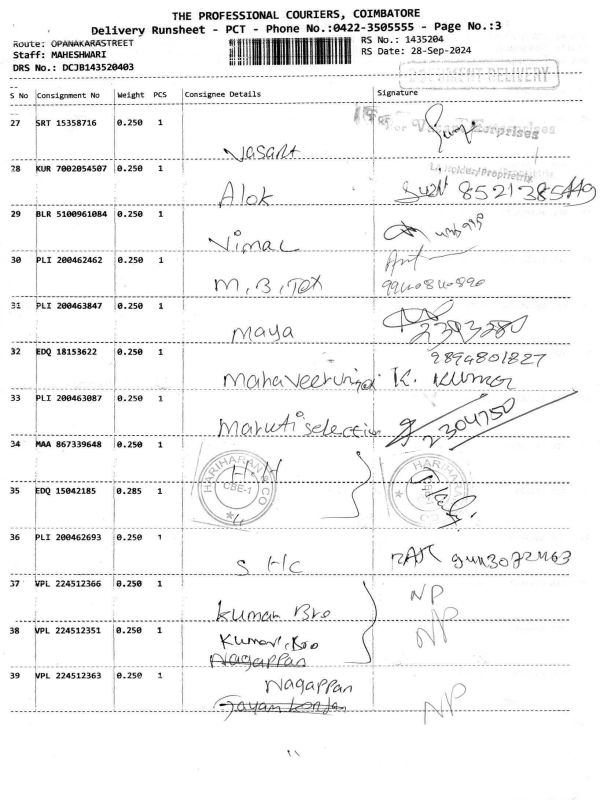 THE PROFESSIONAL COURIERS, COIMBATORE
Delivery Runsheet - PCT - Phone No.:0422-3505555 - Page No.:3
Route: OPANAKARASTREET
RS No.: 1435204
Staff: MAHESHWARI
RS Date: 28-Sep-2024
DRS No.: DCJB143520403
DOCUMENT DELIVERY
S No Consignment No Weight PCS Consignee Details Signature
27 SRT 15358716 0.250 1
Enterprises
Vasant
28 KUR 7002054507 0.250 1
/Proprietrix
Alok
29 BLR 5100961084 0.250 1
Vimal
30 PLI 200462462 0.250 1
M.B.Tex
31 PLI 200463847 0.250 1
Maya 2393280
32 EDQ 18153622 0.250 1
9894801827
K. Kumar
33 PLI 200463087 0.250 1
Maruti selection 2304750
34 MAA 867339648 0.250 1
H.H
HARIHARAN & CO
CBE-1
35 EDQ 15042185 0.285 1
"
36 PLI 200462693 0.250 1
S Hc
37 VPL 224512366 0.250 1
Kumar Bro NP
38 VPL 224512351 0.250 1
Kumar. Bro NP
Nagappan
39 VPL 224512363 0.250 1
Nagappan
NP